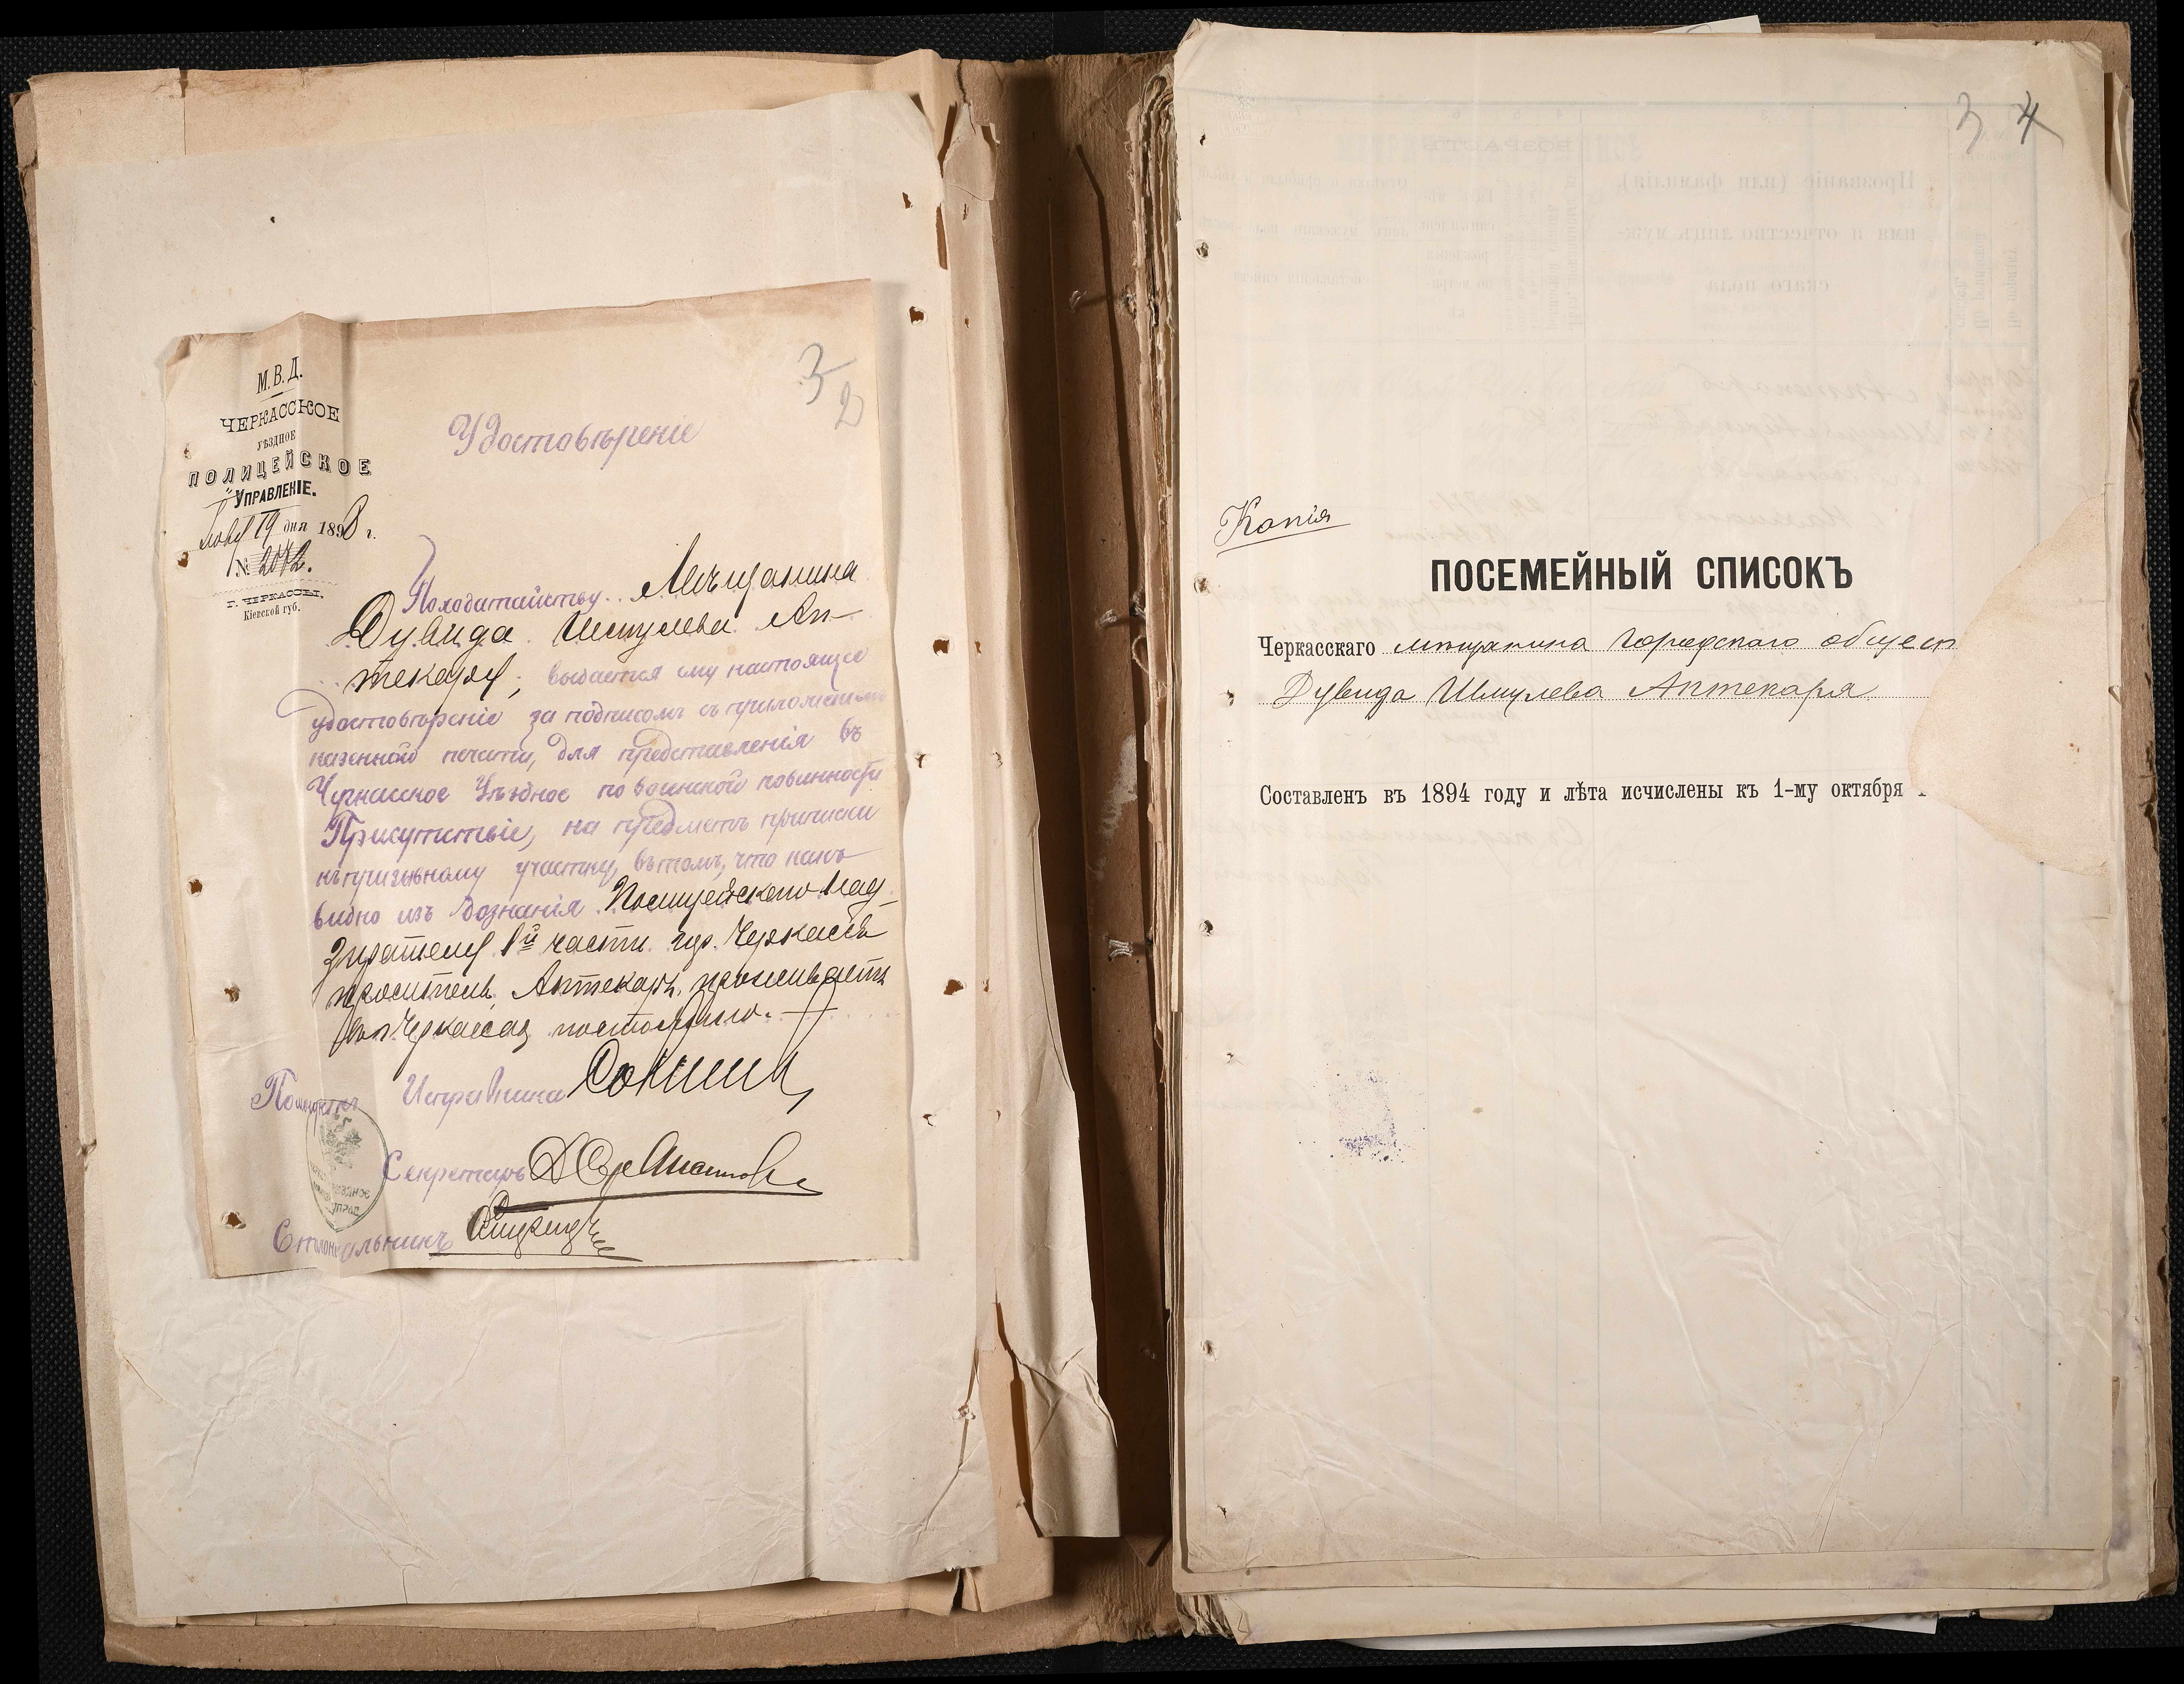 3
2
М.В.Д.
ЧЕРКАССКОЕ
УѢЗДНОЕ
ПОЛИЦЕЙСКОЕ
УПРАВЛЕНІЕ.
19 дня 1898 г.
№
Г. ЧЕРКАССЫ,
Кіевской губ.
Удостовѣреніе
Походатайству Мѣщанина
Дувида Шмулева Ап-
текаря, выдается ему настоящее
удостовѣреніе за подписомъ съ приложеніемъ
казенной печати, для представленія въ
Черкасское Уѣздное по воинской повинности
Присутствіе, на предметъ приписки
къ призывному участку, въ томъ, что какъ
видно изъ дознанія Полицейского Над-
зирателя 1й части гор. Черкассъ
проситель Аптекарь проживаетъ
въ г. Черкассах постоянно.
Помощникъ Исправника
Секретарь
Столоначальникъ
3 4
Копія
ПОСЕМЕЙНЫЙ СПИСОКЪ
Черкасскаго мѣщанина городского общест
Дувида Шмулева Аптекаря
Составленъ въ 1894 году и лѣта исчислены къ 1-му октября